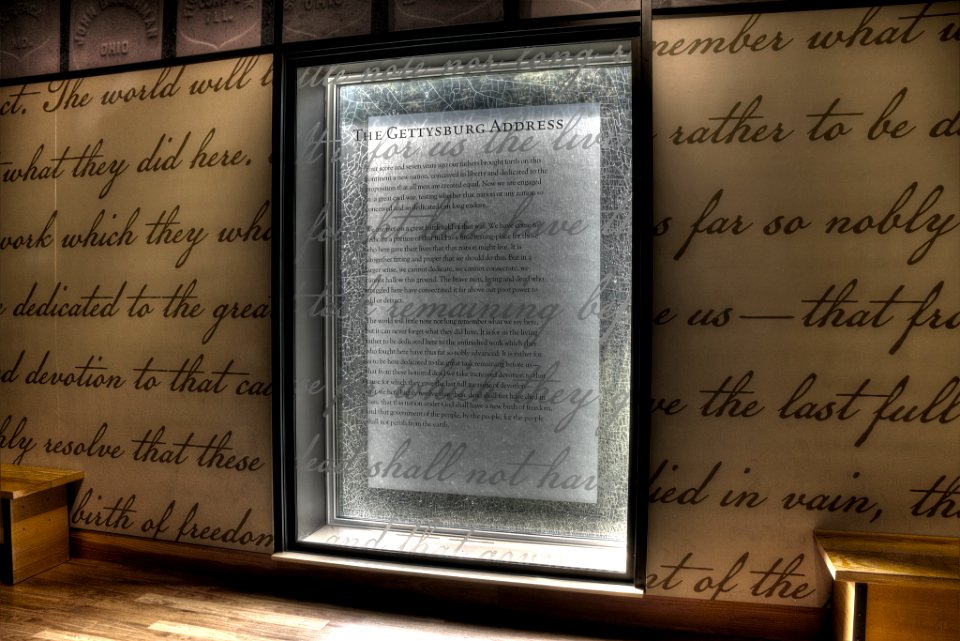 JOHN
OHIO
ILL.
ct. The world will l note nor long r member what w
what they did here. It is for us the liv rather to be d
work which they who fought here have s far so nobly
e dedicated to the grea task remaining be e us—that fro
d devotion to that cau they ve the last full
hly resolve that these dead shall not hav ied in vain, th
birth of freedom and that gov nt of the
THE GETTYSBURG ADDRESS
Four score and seven years ago our fathers brought forth on this
continent a new nation, conceived in liberty and dedicated to the
proposition that all men are created equal. Now we are engaged
in a great civil war, testing whether that nation or any nation so
conceived and so dedicated can long endure.
We are met on a great battlefield of that war. We have come to
dedicate a portion of that field as a final resting place for those
who here gave their lives that that nation might live. It is
altogether fitting and proper that we should do this. But in a
larger sense, we cannot dedicate, we cannot consecrate, we
cannot hallow this ground. The brave men, living and dead who
struggled here have consecrated it far above our poor power to
add or detract.
The world will little note nor long remember what we say here,
but it can never forget what they did here. It is for us the living
rather to be dedicated here to the unfinished work which they
who fought here have thus far so nobly advanced. It is rather for
us to be here dedicated to the great task remaining before us—
that from these honored dead we take increased devotion to that
cause for which they gave the last full measure of devotion—
that we here highly resolve that these dead shall not have died in
vain, that this nation under God shall have a new birth of freedom,
and that government of the people, by the people, for the people
shall not perish from the earth.